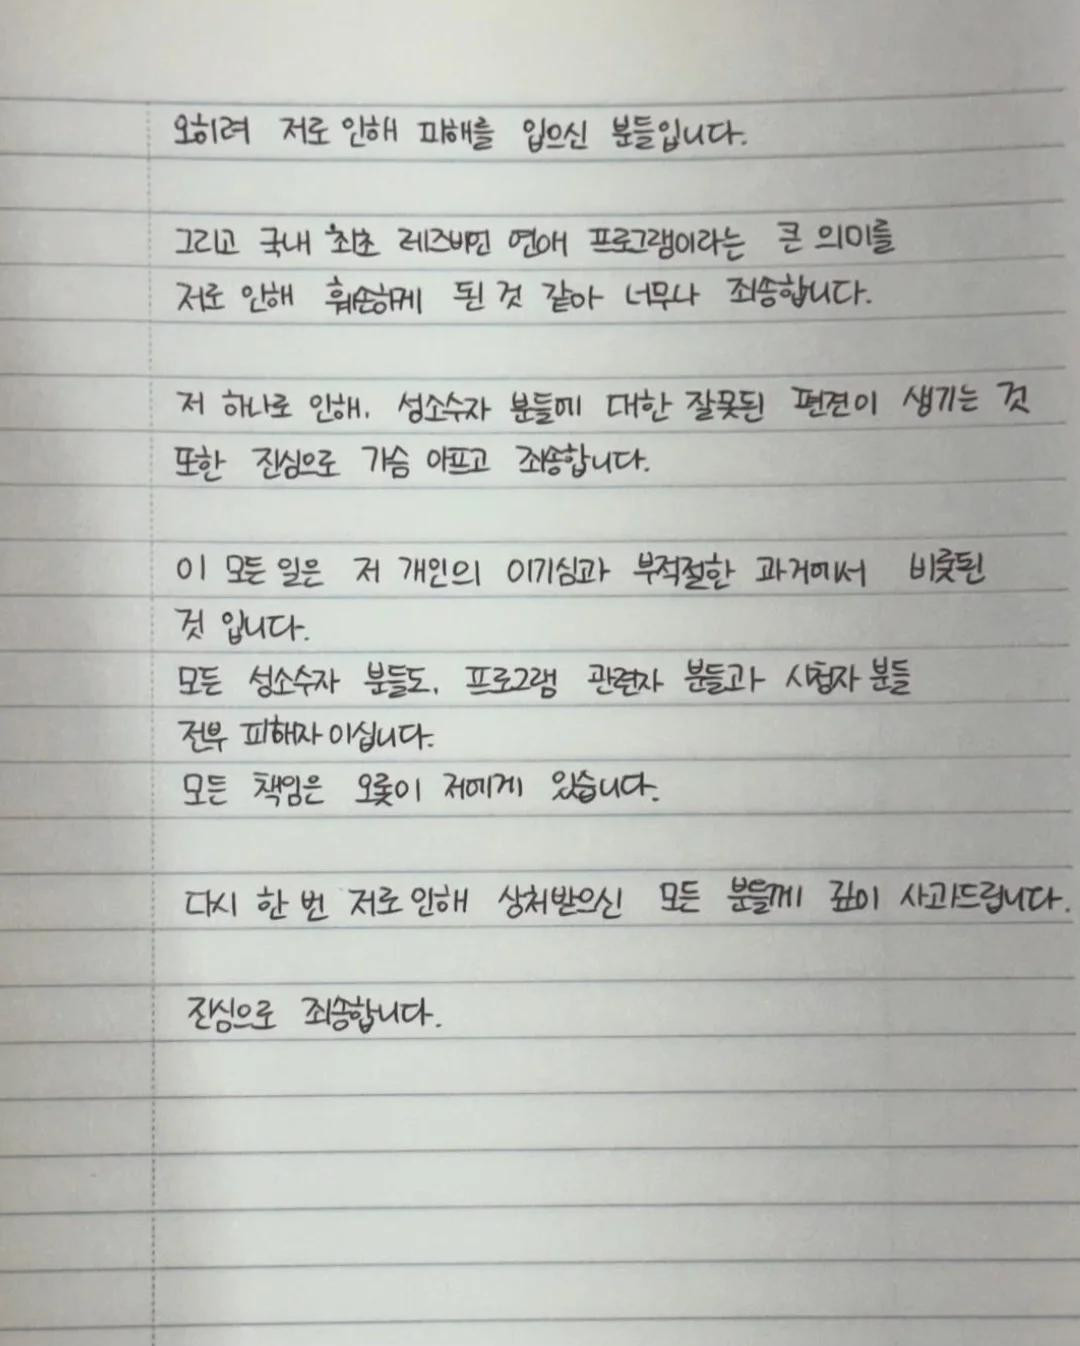 오히려 저로 인해 피해를 입으신 분들입니다.
그리고 국내 최초 레즈비언 연애 프로그램이라는 큰 의미를
저로 인해 훼손하게 된 것 같아 너무나 죄송합니다.
저 하나로 인해, 성소수자 분들에 대한 잘못된 편견이 생기는 것
또한 진심으로 가슴 아프고 죄송합니다.
이 모든 일은 저 개인의 이기심과 부적절한 과거에서 비롯된
것 입니다.
모든 성소수자 분들도, 프로그램 관련자 분들과 시청자 분들
전부 피해자 이십니다.
모든 책임은 오롯이 저에게 있습니다.
다시 한 번 저로 인해 상처받으신 모든 분들께 깊이 사과드립니다.
진심으로 죄송합니다.